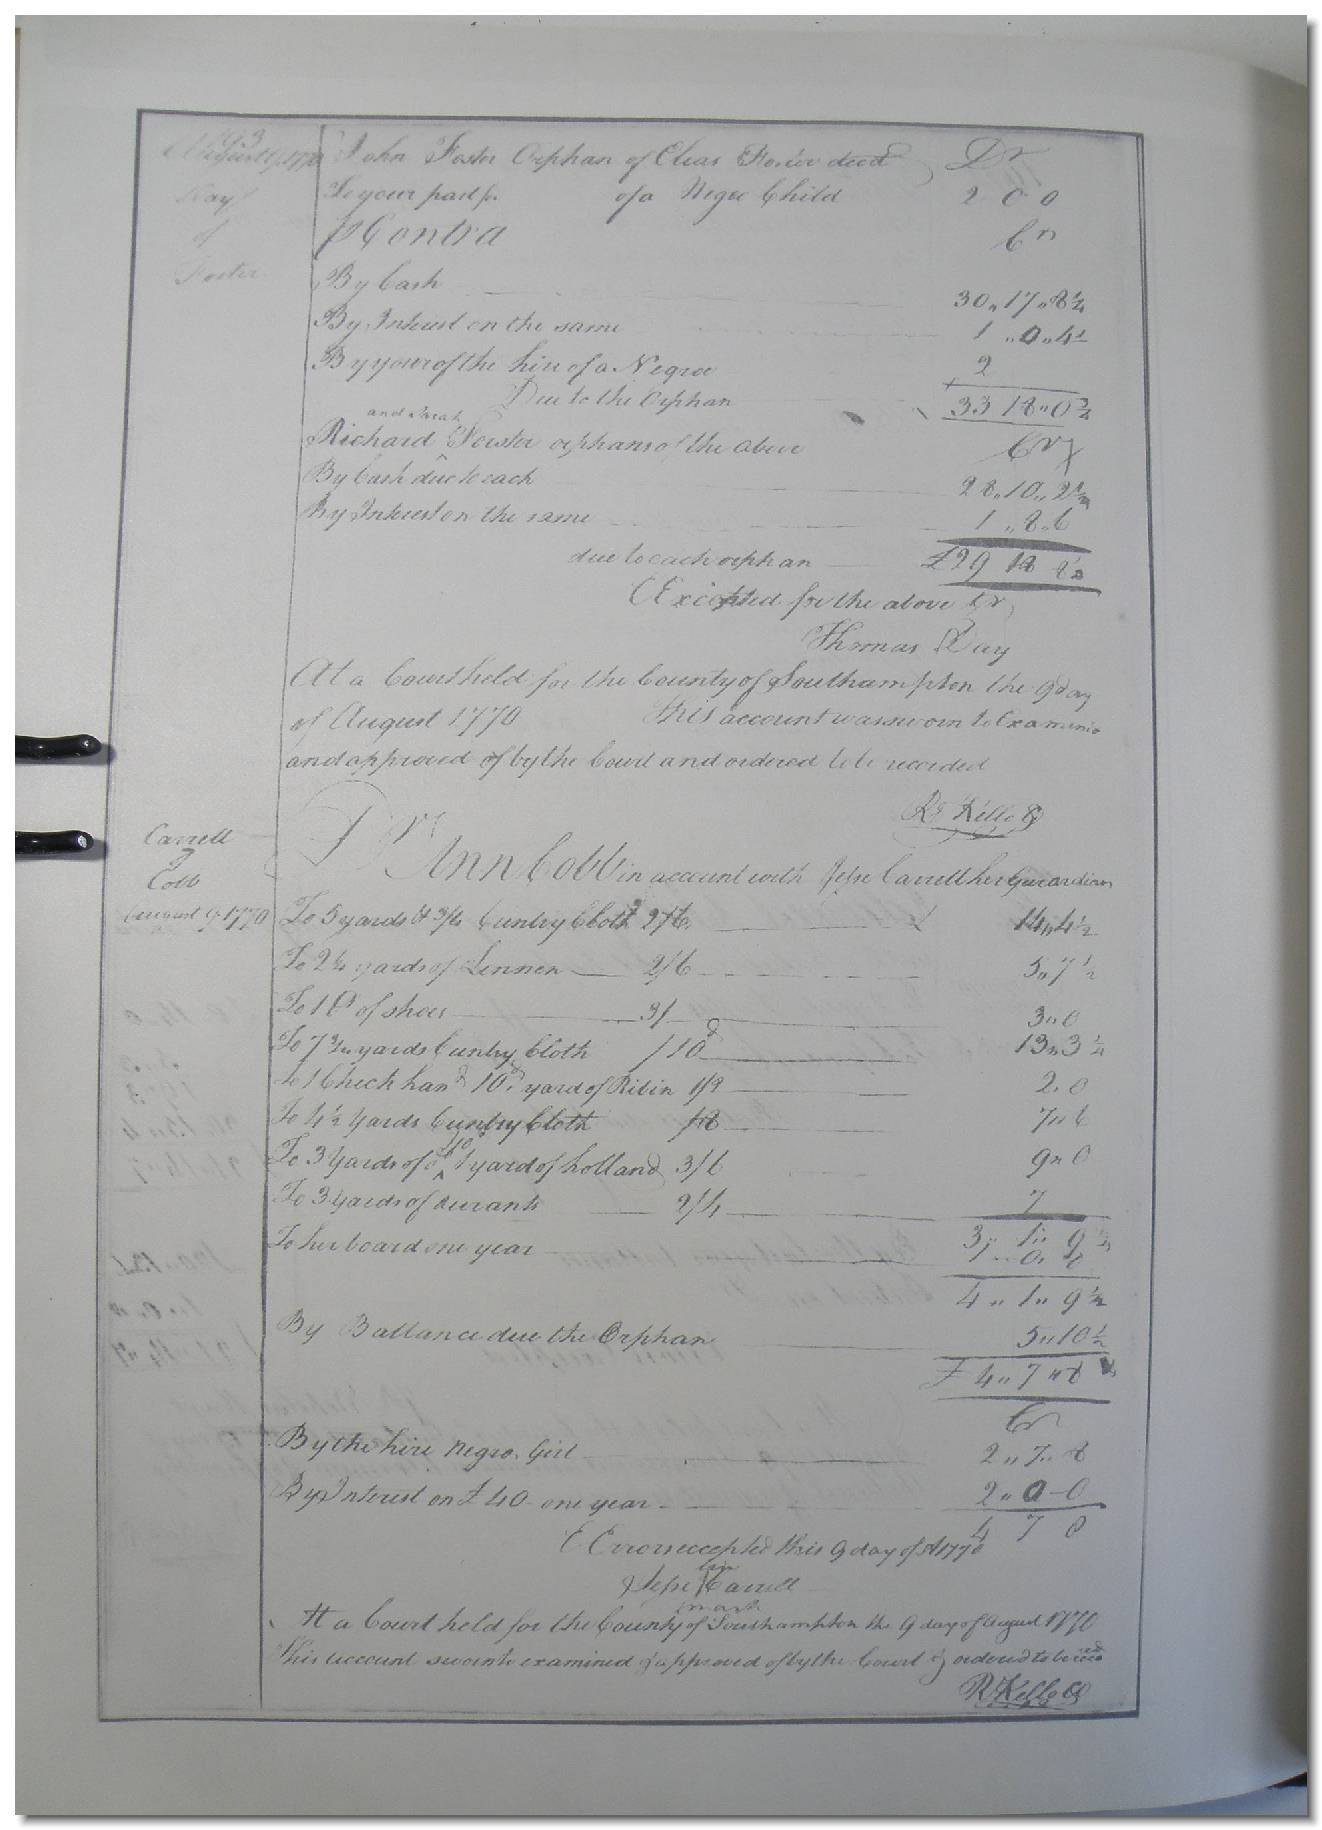 93
August 9 1770
Day
of
Foster
John Foster Orphan of Elias Foster decd Dr
To your part for of a Negro Child 2 0 0
Contra Cr
By Cash 30,,17,,8¼
By Interest on the same 1,,0,,4½
By your of the hire of a Negroe 2
Due to the Orphan 33 18,,0¾
and Sarah
Richard Foster orphans of the above Cr
By Cash due to each 28,,10,,2½
By Interest on the same 1,,8,,6
due to each orphan £29 18 8½
Excepted for the above Er
Thomas Day
At a Court held for the County of Southampton the 9 day
of August 1770 This account was sworn to Examin
and approved of by the Court and ordered to be recorded
Rd Kello
Carrell
Cobb
August 9 1770
Dr
Ann Cobb in account with Jesse Carrell her Guardian
To 5 yards & 3/4 Cuntry Cloth 2/6 14,,4½
To 2¼ yards of Linnen 2/6 5,,7½
To 1 Pr of shoes 3/ 3,,0
To 7 yards Cuntry Cloth /10d 13,,3
To 1 Check hand 10d yard of Ribin 1/2 2,,0
To 4½ yards Cuntry Cloth 7,,6
To 3 Yards of 1 yard of holland 3/6 9,,0
To 3 yards of durants 2/4 7
3,, 1,, 9½
To her board one year 1,,0,,0
4,,1,,9½
By Ballance due the Orphan 5,,10½
£ 4,,7,,8
Cr
By the hire Negro Girl 2,,7,,8
By Interest on £40 one year 2,,0-0
4 7 8
Errors excepted this 9 day of A 1770
his
Jesse Carrell
mark
At a Court held for the County of Southampton the 9 day of August 1770
This account sworn to examined & approved of by the Court & ordered to be recd
R Kello